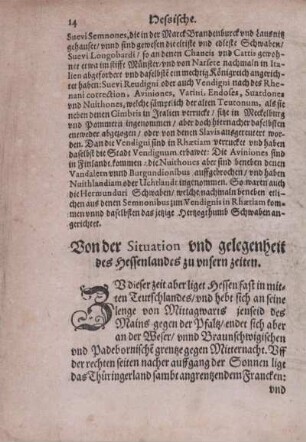 14 Hessische.
Suevi Semnones, die in der Marck Brandenburck vnd Lausnitz
gehauset / vnnd sind gewesen die eltiste vnd edelste Schwaben /
Suevi Longobardi / so an denen Chaucis vnd Cattis gewoh-
ner etwa im stifft Münster / vnd von Narsete nachmaln in Ita-
lien abgefordert vnd daselbst ein mechtig Königreich angerich-
tet haben: Suevi Reudigni oder auch Vendigni nach des Rhe-
nani correction, Aviniones, Varini, Endoses, Suardones
vnd Nuithones, welche sämptlich der alten Teutonum, als sie
neben denen Cimbris in Italien verruckt / sitz in Meckelburg
vnd Pommern eingenommen / aber doch hiernacher daselbsten
entweder abgezogen / oder von denen Slavis ausgereutet wor-
den. Dan die Vendigni sind in Rhætiam verruckt vnd haben
daselbst die Stadt Vendignum erbawet: Die Aviniones sind
in Finland kommen: die Nuithones aber sind beneben denen
Vandalen vnnd Burgundionibus auffgebrochen / vnd haben
Nuithlandiam oder Uchtlandt ingenommen. So waren auch
die Hermunduri Schwaben / welche nachmaln beneben etlichen
aus denen Semnonibus zum Vendignis in Rhætiam kom-
men vnnd daselbsten das jetzige Hertzogthumb Schwaben an-
gerichtet.
Von der Situation vnd gelegenheit
des Hessenlandes zu vnsern zeiten.
ZV dieser zeit aber liget Hessen fast in mit-
ten Teutschlandes / vnd hebt sich an seine
lenge von Mittagwarts jenseid des
Mains gegen der Pfaltz / endet sich aber
an der Weser / vnnd Braunschwigischen
vnd Padebornischē grentze gegen Mitternacht. Vff
der rechten seiten nacher auffgang der Sonnen ligt
das Thüringerland sambt angrentzendem Francken:
vnd